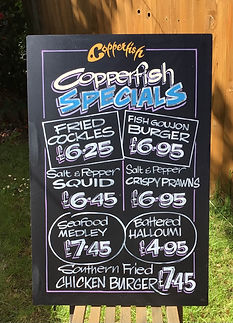 Copperfish
Copperfish
SPECIALS
FRIED
COCKLES
£6.25
FISH GOUJON
BURGER
£6.95
Salt & Pepper
SQUID
£6.45
Salt & Pepper
CRISPY PRAWNS
£6.95
Seafood
MEDLEY
£7.45
Battered
HALLOUMI
£4.95
Southern Fried
CHICKEN BURGER £7.45